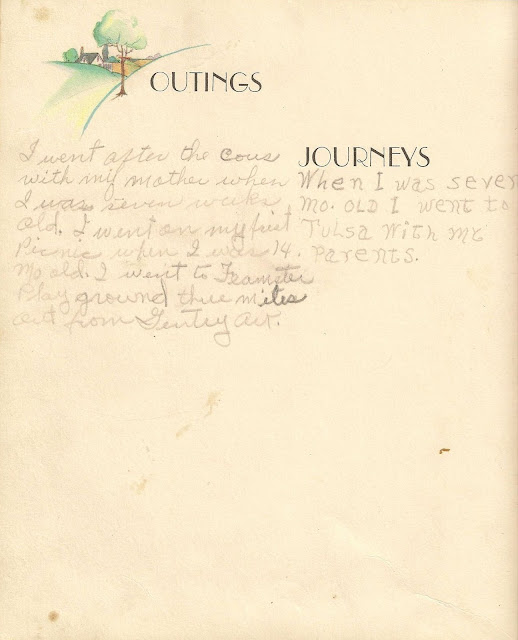 OUTINGS
I went after the cows
with my mother when
I was seven weeks
old. I went on my first
Picnic when I was 14.
Mo old. I went to
Play ground three miles
out from Gentry Ark.
JOURNEYS
When I was seven
Mo. OLD I went to
TULSA With my
Parents.